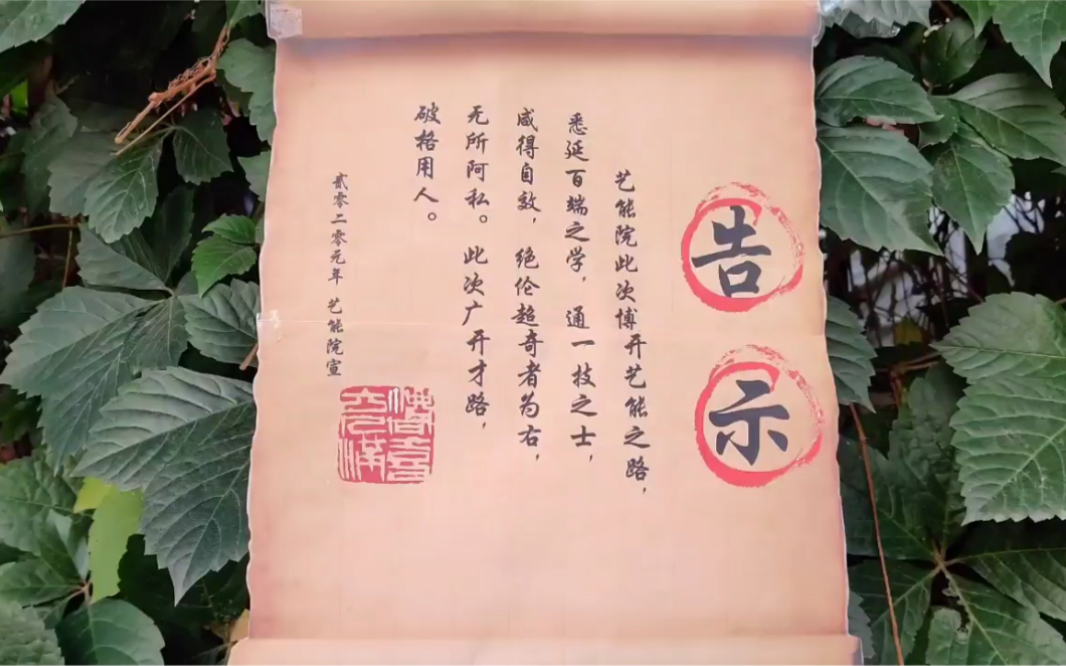 告示
艺能院此次博开艺能之路，
悉延百端之学，通一技之士，
咸得自效，绝伦超奇者为右，
无所阿私。此次广开才路，
破格用人。
贰零二零元年 艺能院宣